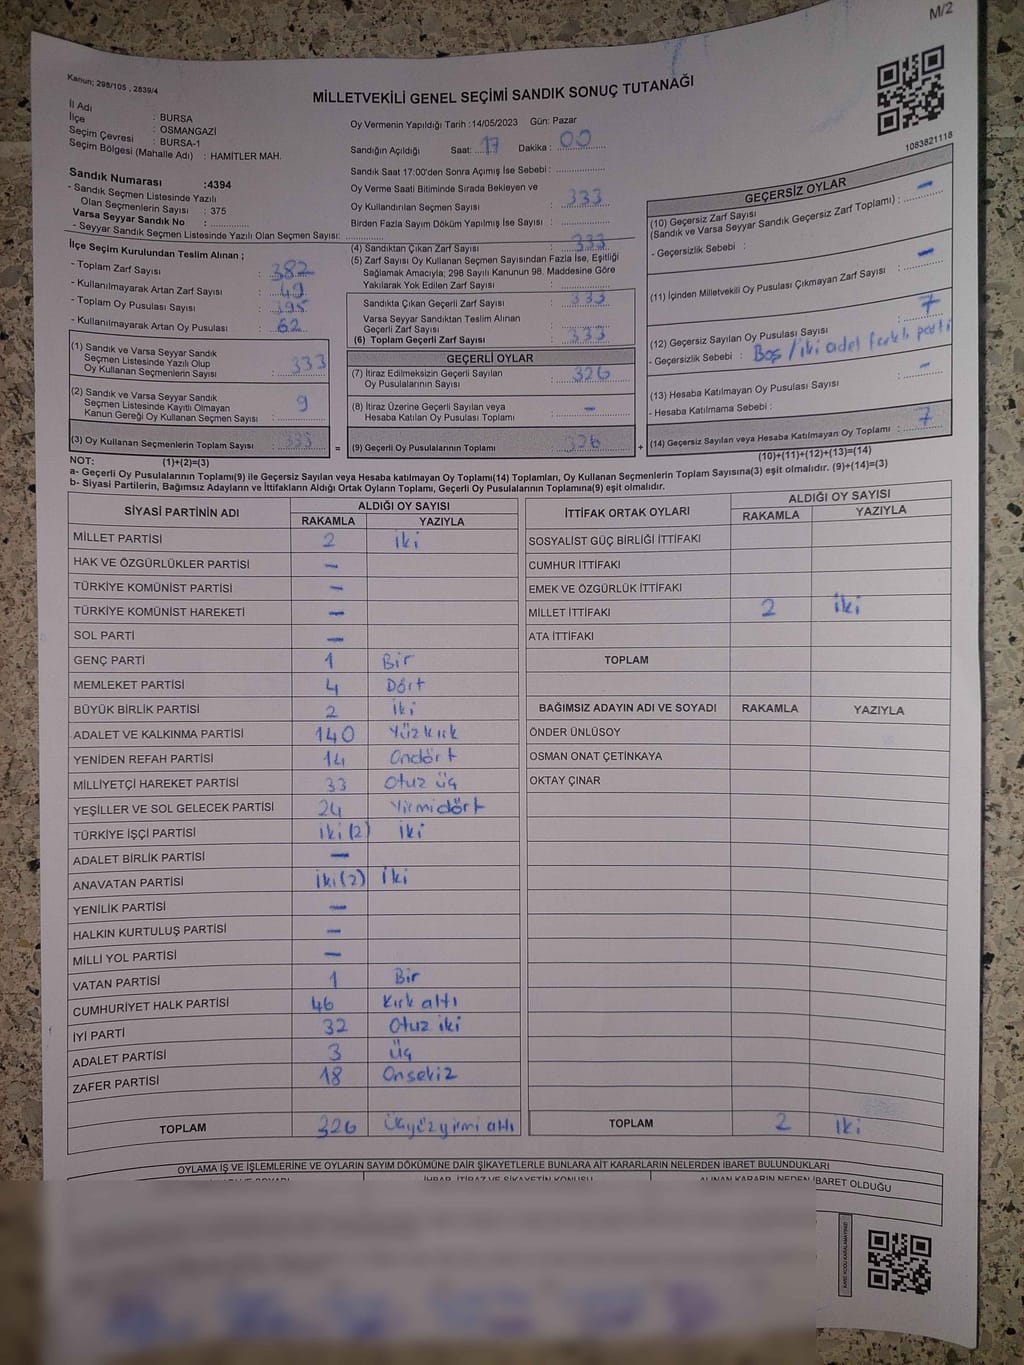 M/2
Kanun; 298/105 , 2839/4
MİLLETVEKİLİ GENEL SEÇİMİ SANDIK SONUÇ TUTANAĞI
1083821118
İl Adı : BURSA
İlçe : OSMANGAZİ
Seçim Çevresi : BURSA-1
Seçim Bölgesi (Mahalle Adı) : HAMİTLER MAH.
Sandık Numarası :4394
- Sandık Seçmen Listesinde Yazılı
Olan Seçmenlerin Sayısı : 375
Varsa Seyyar Sandık No :
- Seyyar Sandık Seçmen Listesinde Yazılı Olan Seçmen Sayısı:
İlçe Seçim Kurulundan Teslim Alınan ;
- Toplam Zarf Sayısı : 382
- Kullanılmayarak Artan Zarf Sayısı : 49
- Toplam Oy Pusulası Sayısı : 395
- Kullanılmayarak Artan Oy Pusulası : 62
(1) Sandık ve Varsa Seyyar Sandık
Seçmen Listesinde Yazılı Olup
Oy Kullanan Seçmenlerin Sayısı : 333
(2) Sandık ve Varsa Seyyar Sandık
Seçmen Listesinde Kayıtlı Olmayan
Kanun Gereği Oy Kullanan Seçmen Sayısı : 9
(3) Oy Kullanan Seçmenlerin Toplam Sayısı : 333 =
Oy Vermenin Yapıldığı Tarih :14/05/2023 Gün: Pazar
Sandığın Açıldığı Saat: 17 Dakika : 00
Sandık Saat 17:00'den Sonra Açımış İse Sebebi :
Oy Verme Saati Bitiminde Sırada Bekleyen ve
Oy Kullandırılan Seçmen Sayısı : 333
Birden Fazla Sayım Döküm Yapılmış İse Sayısı :
(4) Sandıktan Çıkan Zarf Sayısı : 333
(5) Zarf Sayısı Oy Kullanan Seçmen Sayısından Fazla İse, Eşitliği
Sağlamak Amacıyla; 298 Sayılı Kanunun 98. Maddesine Göre
Yakılarak Yok Edilen Zarf Sayısı :
Sandıkta Çıkan Geçerli Zarf Sayısı : 333
Varsa Seyyar Sandıktan Teslim Alınan
Geçerli Zarf Sayısı :
(6) Toplam Geçerli Zarf Sayısı : 333
GEÇERLİ OYLAR
(7) İtiraz Edilmeksizin Geçerli Sayılan
Oy Pusulalarının Sayısı : 326
(8) İtiraz Üzerine Geçerli Sayılan veya
Hesaba Katılan Oy Pusulası Toplamı : –
(9) Geçerli Oy Pusulalarının Toplamı : 326 +
GEÇERSİZ OYLAR
(10) Geçersiz Zarf Sayısı
(Sandık ve Varsa Seyyar Sandık Geçersiz Zarf Toplamı) : –
- Geçersizlik Sebebi :
(11) İçinden Milletvekili Oy Pusulası Çıkmayan Zarf Sayısı : –
(12) Geçersiz Sayılan Oy Pusulası Sayısı : 7
- Geçersizlik Sebebi : Boş / iki adet farklı parti
(13) Hesaba Katılmayan Oy Pusulası Sayısı : –
- Hesaba Katılmama Sebebi :
(14) Geçersiz Sayılan veya Hesaba Katılmayan Oy Toplamı : 7
(10)+(11)+(12)+(13)=(14)
NOT: (1)+(2)=(3)
a- Geçerli Oy Pusulalarının Toplamı(9) ile Geçersiz Sayılan veya Hesaba katılmayan Oy Toplamı(14) Toplamları, Oy Kullanan Seçmenlerin Toplam Sayısına(3) eşit olmalıdır. (9)+(14)=(3)
b- Siyasi Partilerin, Bağımsız Adayların ve İttifakların Aldığı Ortak Oyların Toplamı, Geçerli Oy Pusulalarının Toplamına(9) eşit olmalıdır.
SİYASİ PARTİNİN ADI ALDIĞI OY SAYISI
RAKAMLA YAZIYLA
MİLLET PARTİSİ 2 iki
HAK VE ÖZGÜRLÜKLER PARTİSİ –
TÜRKİYE KOMÜNİST PARTİSİ –
TÜRKİYE KOMÜNİST HAREKETİ –
SOL PARTİ –
GENÇ PARTİ 1 Bir
MEMLEKET PARTİSİ 4 Dört
BÜYÜK BİRLİK PARTİSİ 2 iki
ADALET VE KALKINMA PARTİSİ 140 Yüzkırk
YENİDEN REFAH PARTİSİ 14 Ondört
MİLLİYETÇİ HAREKET PARTİSİ 33 Otuz üç
YEŞİLLER VE SOL GELECEK PARTİSİ 24 Yirmidört
TÜRKİYE İŞÇİ PARTİSİ iki(2) iki
ADALET BİRLİK PARTİSİ –
ANAVATAN PARTİSİ iki(2) iki
YENİLİK PARTİSİ –
HALKIN KURTULUŞ PARTİSİ –
MİLLİ YOL PARTİSİ –
VATAN PARTİSİ 1 Bir
CUMHURİYET HALK PARTİSİ 46 Kırk altı
İYİ PARTİ 32 Otuz iki
ADALET PARTİSİ 3 Üç
ZAFER PARTİSİ 18 Onsekiz
TOPLAM 326 Üçyüzyirmi altı
İTTİFAK ORTAK OYLARI ALDIĞI OY SAYISI
RAKAMLA YAZIYLA
SOSYALİST GÜÇ BİRLİĞİ İTTİFAKI
CUMHUR İTTİFAKI
EMEK VE ÖZGÜRLÜK İTTİFAKI
MİLLET İTTİFAKI 2 iki
ATA İTTİFAKI
TOPLAM
BAĞIMSIZ ADAYIN ADI VE SOYADI RAKAMLA YAZIYLA
ÖNDER ÜNLÜSOY
OSMAN ONAT ÇETİNKAYA
OKTAY ÇINAR
TOPLAM 2 iki
OYLAMA İŞ VE İŞLEMLERİNE VE OYLARIN SAYIM DÖKÜMÜNE DAİR ŞİKAYETLERLE BUNLARA AİT KARARLARIN NELERDEN İBARET BULUNDUKLARI
İHBAR, İTİRAZ VE ŞİKAYETİN KONUSU ALINAN KARARIN NEDEN İBARET OLDUĞU